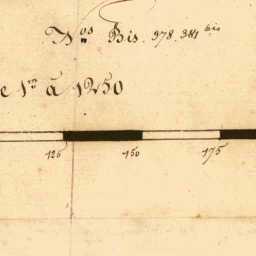 N.os Bis. 978. 381 bis
e 1.m à 1250
125 150 175